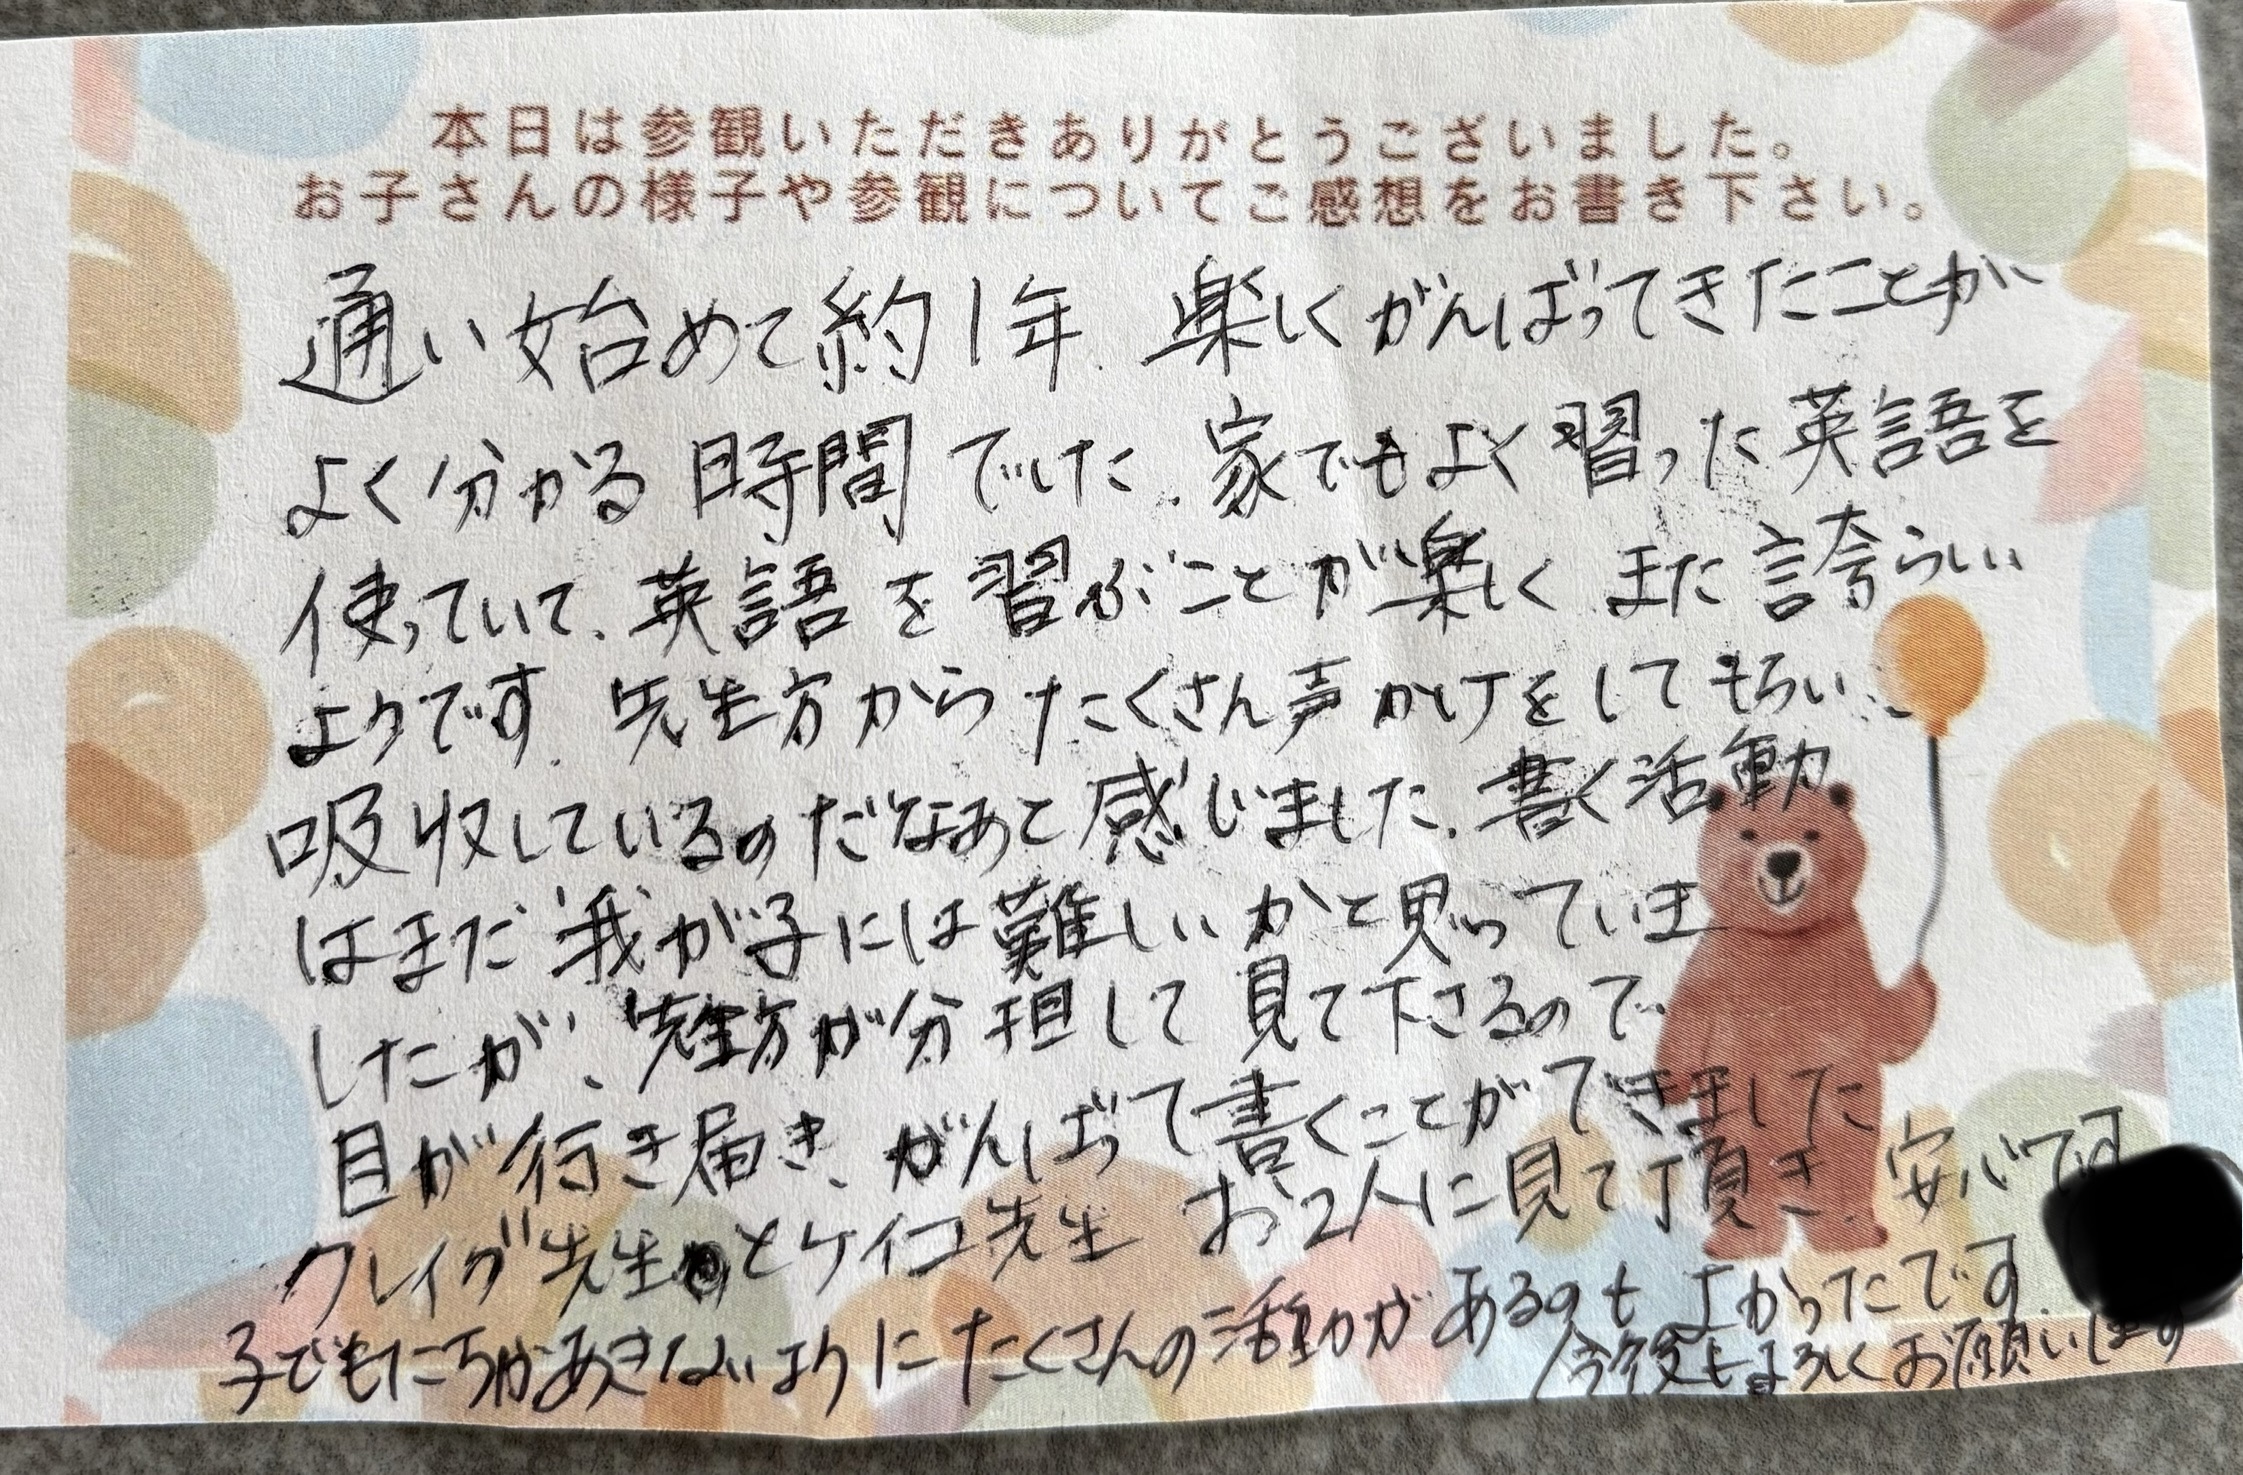 本日は参観いただきありがとうございました。
お子さんの様子や参観についてご感想をお書き下さい。
通い始めて約1年、楽しくがんばってきたことが
よく分かる時間でした。家でもよく習った英語を
使っていて、英語を習ぶことが楽しくまた誇らしい
ようです。先生方からたくさん声かけをしてもらい、
吸収しているのだなあと感じました。書く活動
はまだ我が子には難しいかと思っていま
したが、先生方が分担して見て下さるので
目が行き届き、がんばって書くことができました
クレイグ先生とケイコ先生お2人に見て頂き、安心です
子どもたちがあきないようにたくさんの活動があるのもよかったです。
今後もよろしくお願いします